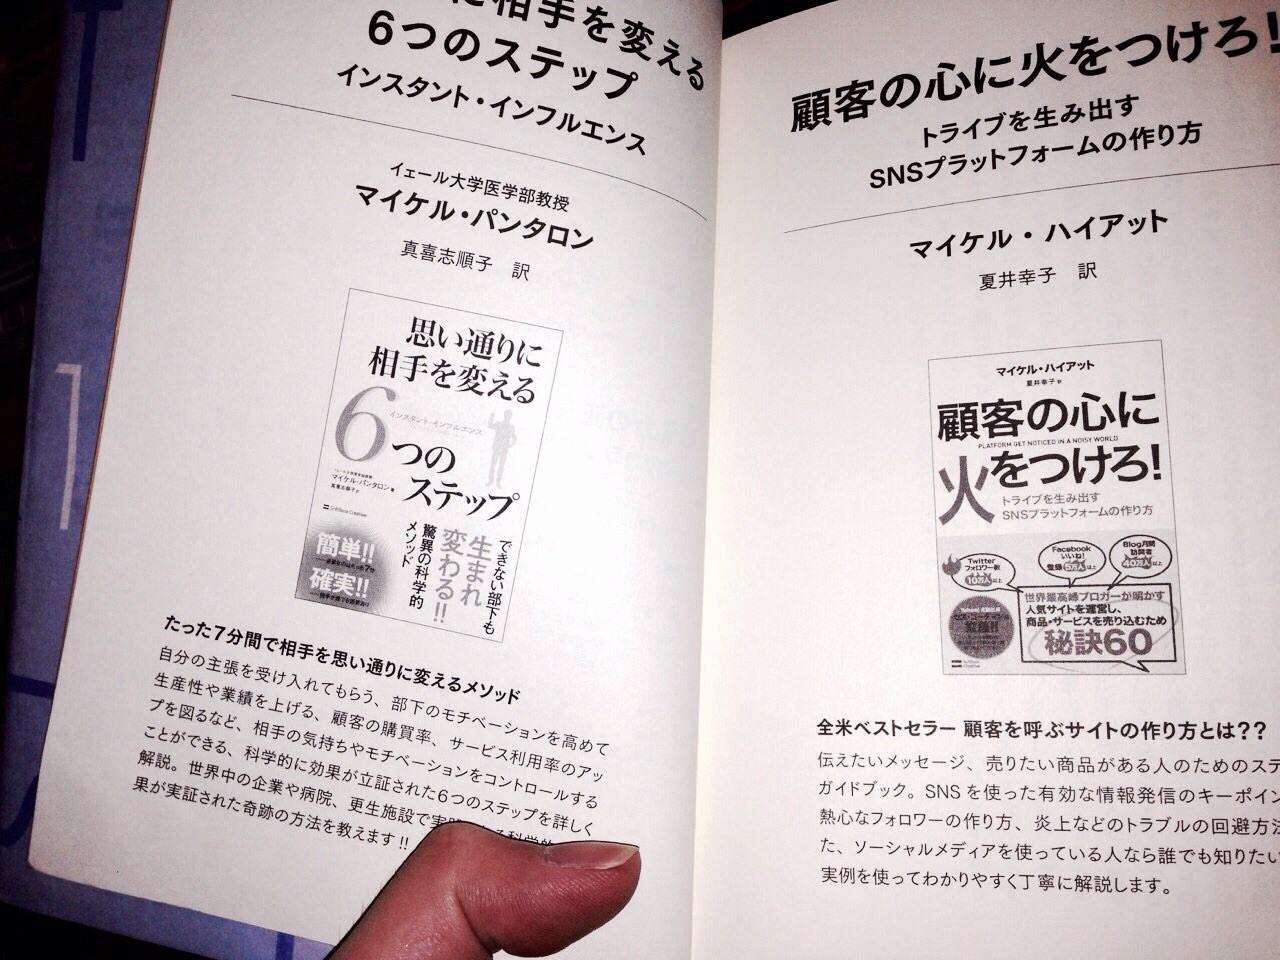 に相手を変える
6つのステップ
インスタント・インフルエンス
イェール大学医学部教授
マイケル・パンタロン
真喜志順子 訳
思い通りに
相手を変える
6つの
インスタント・インフルエンス
ステップ
マイケル・パンタロン
真喜志順子
SoftBank Creative
簡単!!
確実!!
できない部下も
生まれ
変わる!!
驚異の科学的
メソッド
たった7分間で相手を思い通りに変えるメソッド
自分の主張を受け入れてもらう、部下のモチベーションを高めて
生産性や業績を上げる、顧客の購買率、サービス利用率のアッ
プを図るなど、相手の気持ちやモチベーションをコントロールする
ことができる、科学的に効果が立証された6つのステップを詳しく
解説。世界中の企業や病院、更生施設で実
果が実証された奇跡の方法を教えます!!
顧客の心に火をつけろ!
トライブを生み出す
SNSプラットフォームの作り方
マイケル・ハイアット
夏井幸子 訳
マイケル・ハイアット
夏井幸子 訳
顧客の心に
PLATFORM GET NOTICED IN A NOISY WORLD
火をつけろ!
トライブを生み出す
SNSプラットフォームの作り方
Twitter
フォロワー数
10万人以上
Facebook
いいね!
登録5万人以上
Blog月間
訪問者
40万人以上
世界最高峰ブロガーが明かす
人気サイトを運営し、
商品・サービスを売り込むため
秘訣60
全米ベストセラー 顧客を呼ぶサイトの作り方とは??
伝えたいメッセージ、売りたい商品がある人のためのステ
ガイドブック。SNSを使った有効な情報発信のキーポイン
熱心なフォロワーの作り方、炎上などのトラブルの回避方法
た、ソーシャルメディアを使っている人なら誰でも知りたい
実例を使ってわかりやすく丁寧に解説します。